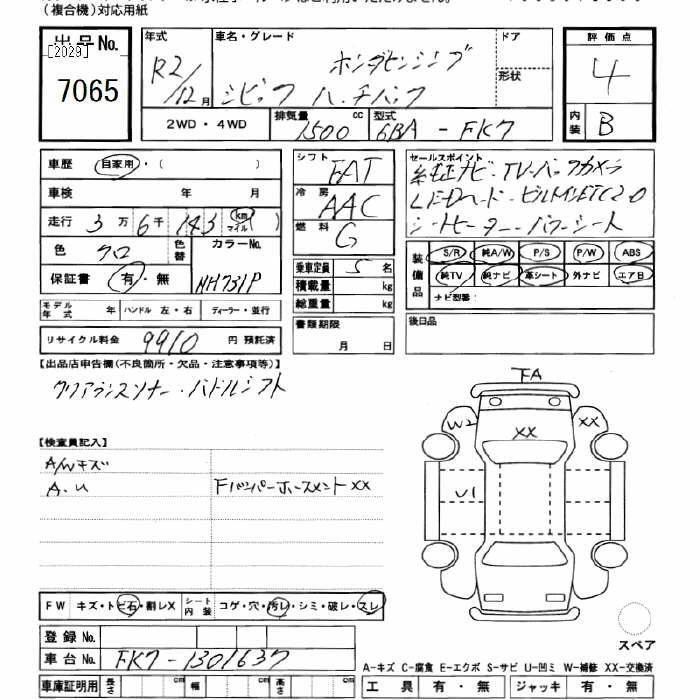 (複合機)対応用紙
出品No.
[2029]
7065
年式
R2/12月
車名・グレード
ホンダセンシング
シビック ハッチバック
ドア
形状
評価点
4
内装
B
2WD・4WD
排気量
1500 cc
型式
6BA-FK7
車歴 自家用・( )
車検 年 月
走行 3万6千143 km マイル ( )
色 クロ
色替
カラーNo.
NH731P
保証書 有・無
モデル年式 年 ハンドル 左・右 ディーラー・並行
リサイクル料金 9910 円 預託済
シフト FAT
冷房 AAC
燃料 G
乗車定員 5 名
積載量 kg
総重量 kg
書類期限
月 日
セールスポイント
純正ナビ・TV・バックカメラ
LEDヘッド・ビルトインETC2.0
シートヒーター・パワーシート
装備品
S/R 純A/W P/S P/W ABS
純TV 純ナビ 革シート 外ナビ エアB
ナビ型番:
後日品
【出品店申告欄(不良箇所・欠品・注意事項等)】
クリアランスソナー・パドルシフト
【検査員記入】
A/Wキズ
A.U
Fバンパーホースメント XX
FA
W2
XX
XX
U1
FW キズ・トビ石・割レX
シート内装 コゲ・穴・汚レ・シミ・破レ・スレ
登録No.
車台No. FK7-1301637
車庫証明用 長さ cm 幅 cm 高さ cm
スペア
A-キズ C-腐食 E-エクボ S-サビ U-凹ミ W-補修 XX-交換済
工具 有・無 ジャッキ 有・無